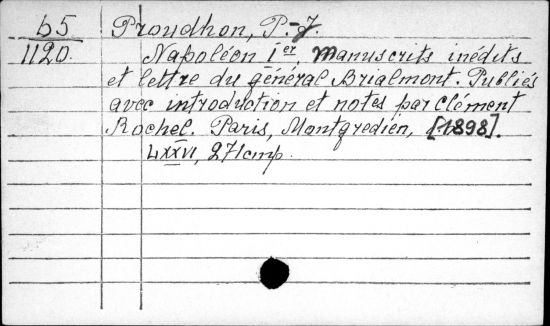 65 Proudhon, P.-J.
1120. Napoléon Ier, manuscrits inédits
et lettre du général Brialmont. Publiés
avec introduction et notes par Clément
Rochel. Paris, Montgredien, [1898].
LXXVI, 271 cmp.